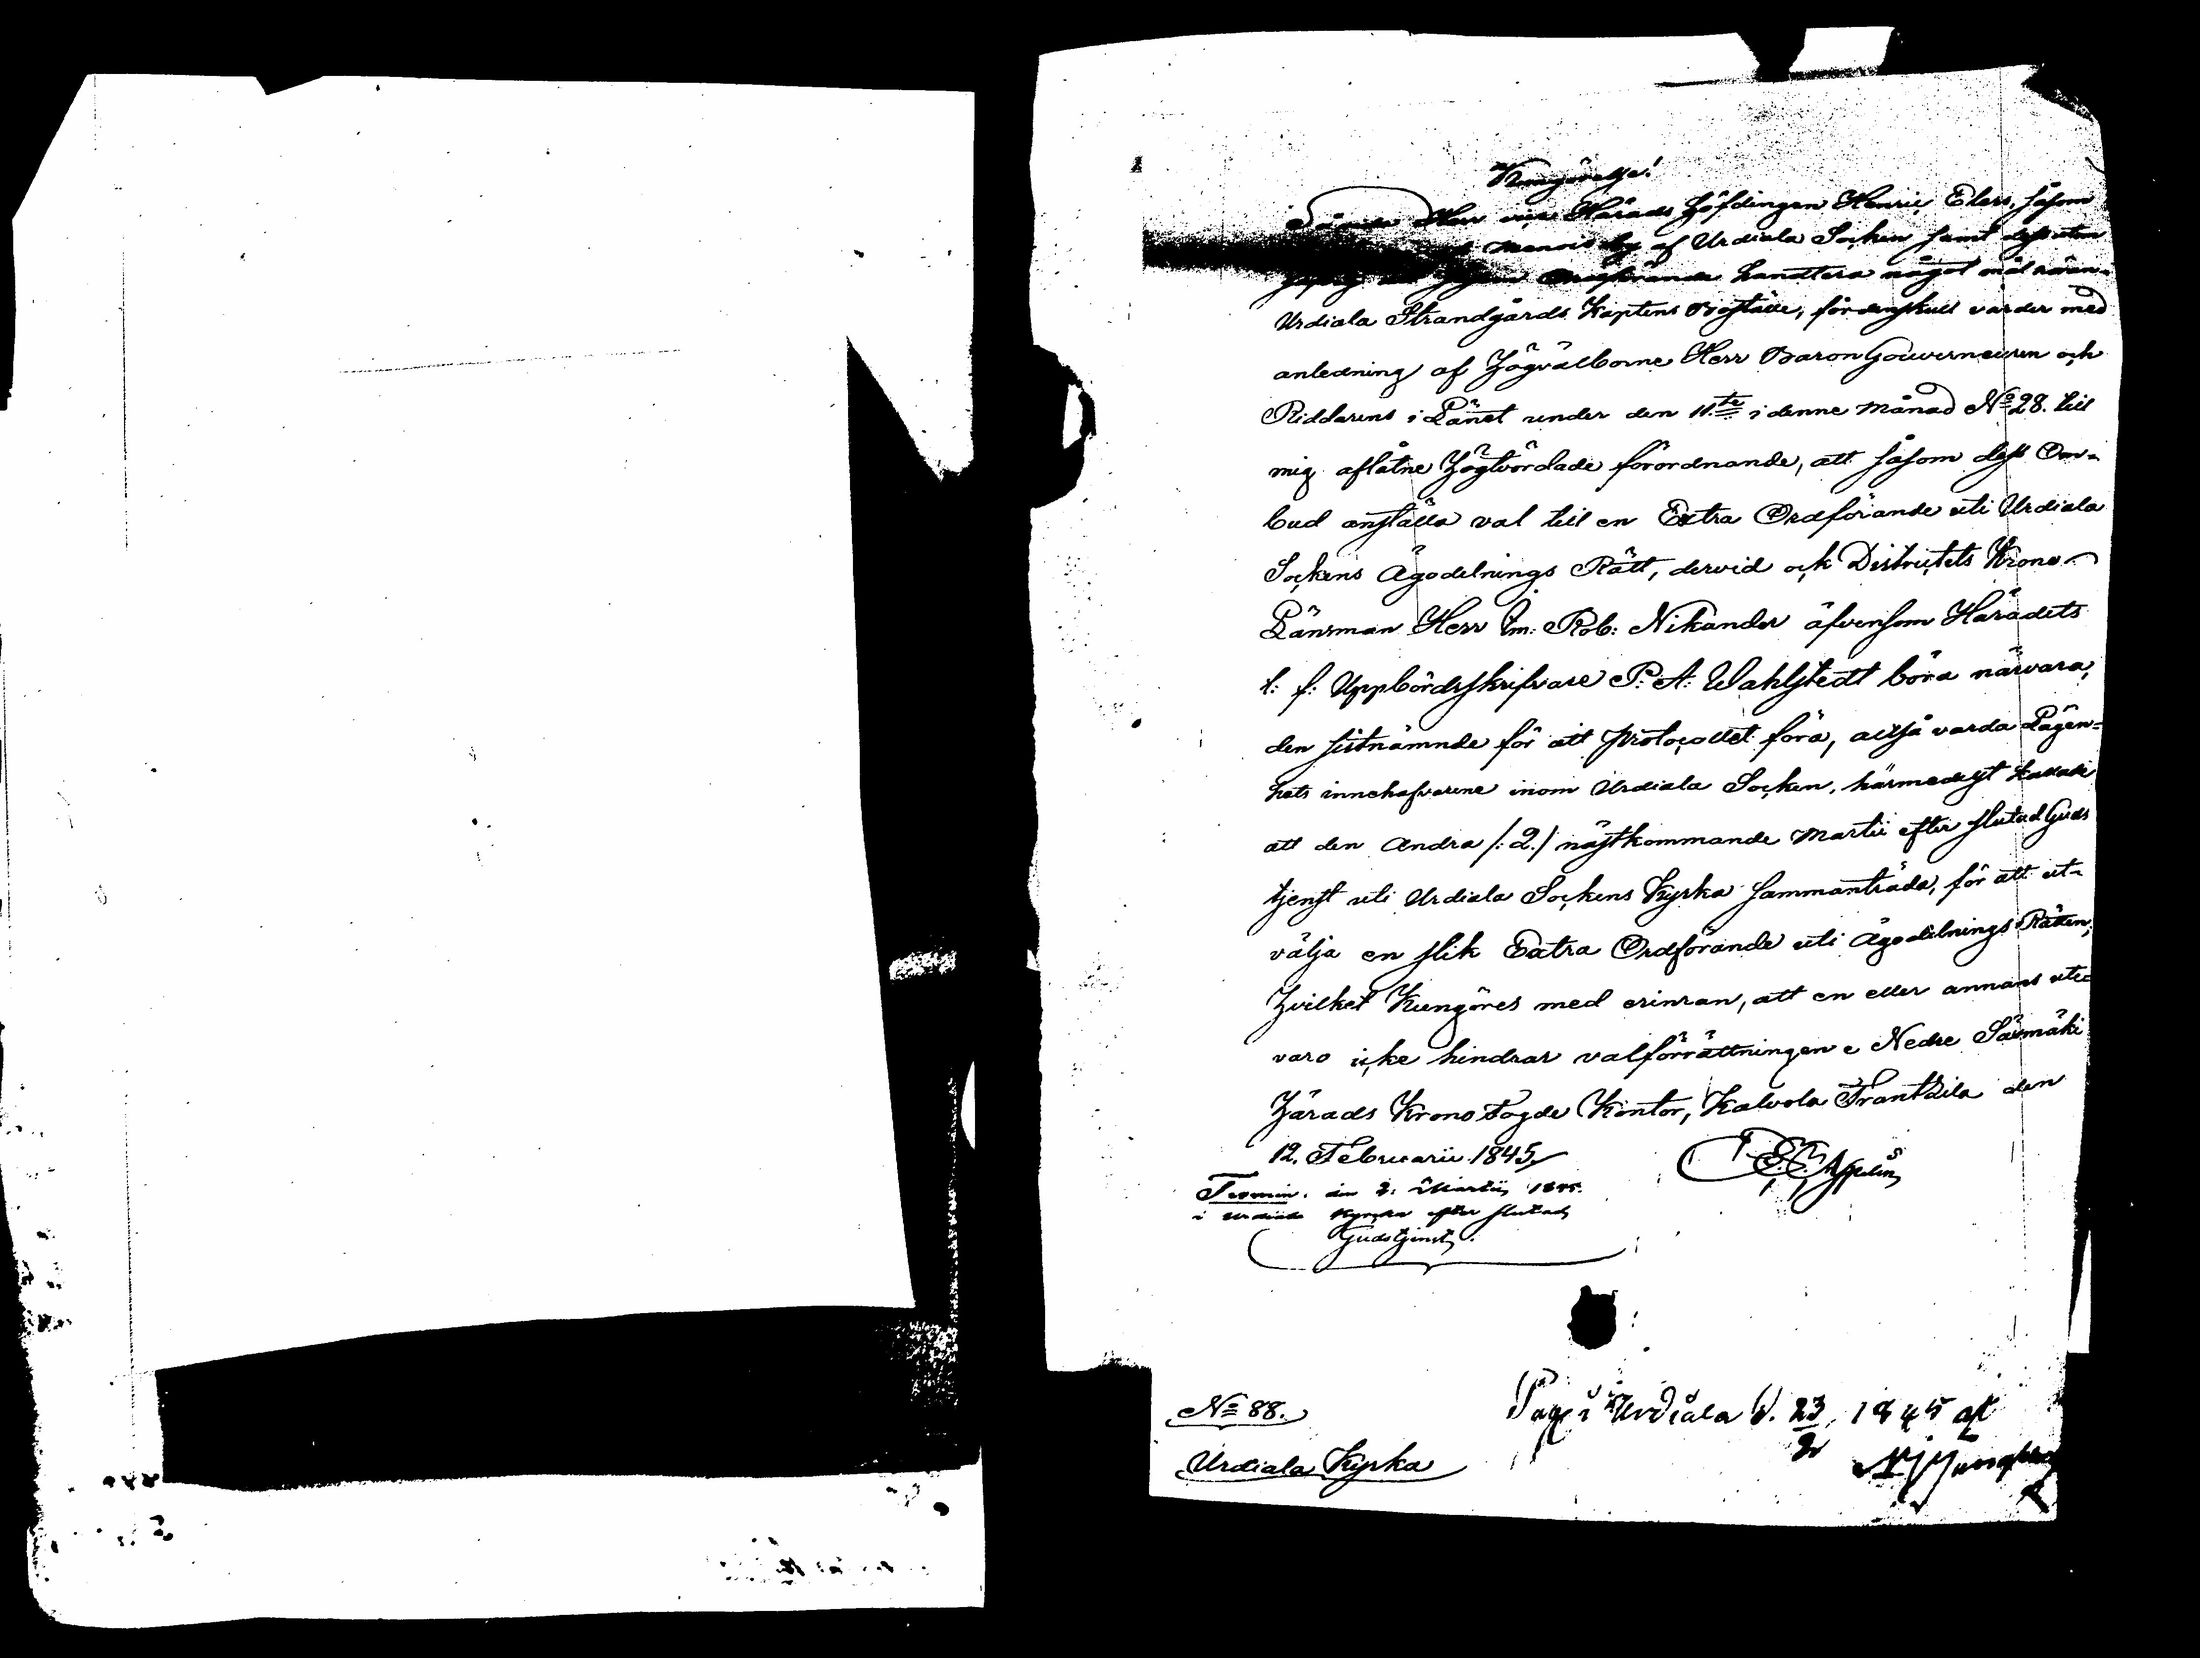 Kungörelse!
Herr vice Härads Höfdingen Henric Elers, såsom
by af Urdiala Socken samt dessutom
Ordförande handtera något mål rören-
Urdiala Strandgårds Kaptens Boställe, fördenskull varder med
anledning af Högvälborne Herr Baron Gouverneuren och
Riddarens i Länet under den 11.te i denne månad No 28. till
mig aflåtne Högtvördade förordnande, att såsom dess Om-
bud anställa val till en Extra Ordförande uti Urdiala
Sockens Ägodelnings Rätt, dervid ock Districtets Krono
Länsman Herr Im: Rob: Nikander äfvensom Häradets
t: f: Uppbördsskrifvare P: A: Wahlstedt böra närvara,
den sistnämnde för att Protocollet föra, alltså varda Lägen-
hets innehafvarene inom Urdiala Socken, härmedelst kallade
att den Andra /: 2./ nästkommande Martii efter slutad Guds
tjenst uti Urdiala Sockens Kyrka sammanträda, för att ut-
välja en slik Extra Ordförande uti Ägodelnings Rätten,
Hvilket Kungöres med erinran, att en eller annans ute-
varo icke hindrar valförrättningen Nedre Säxmäki
Härads Krono Fogde Kontor, Kalvola Frantsila den
12. Februarii 1845.
Termin. den 2: Martii 1845.
i Urdiala Kyrcka efter slutad
Gudstjenst.
No 88.
Urdiala Kyrka
i Urdiala d. 23/2 1845 af